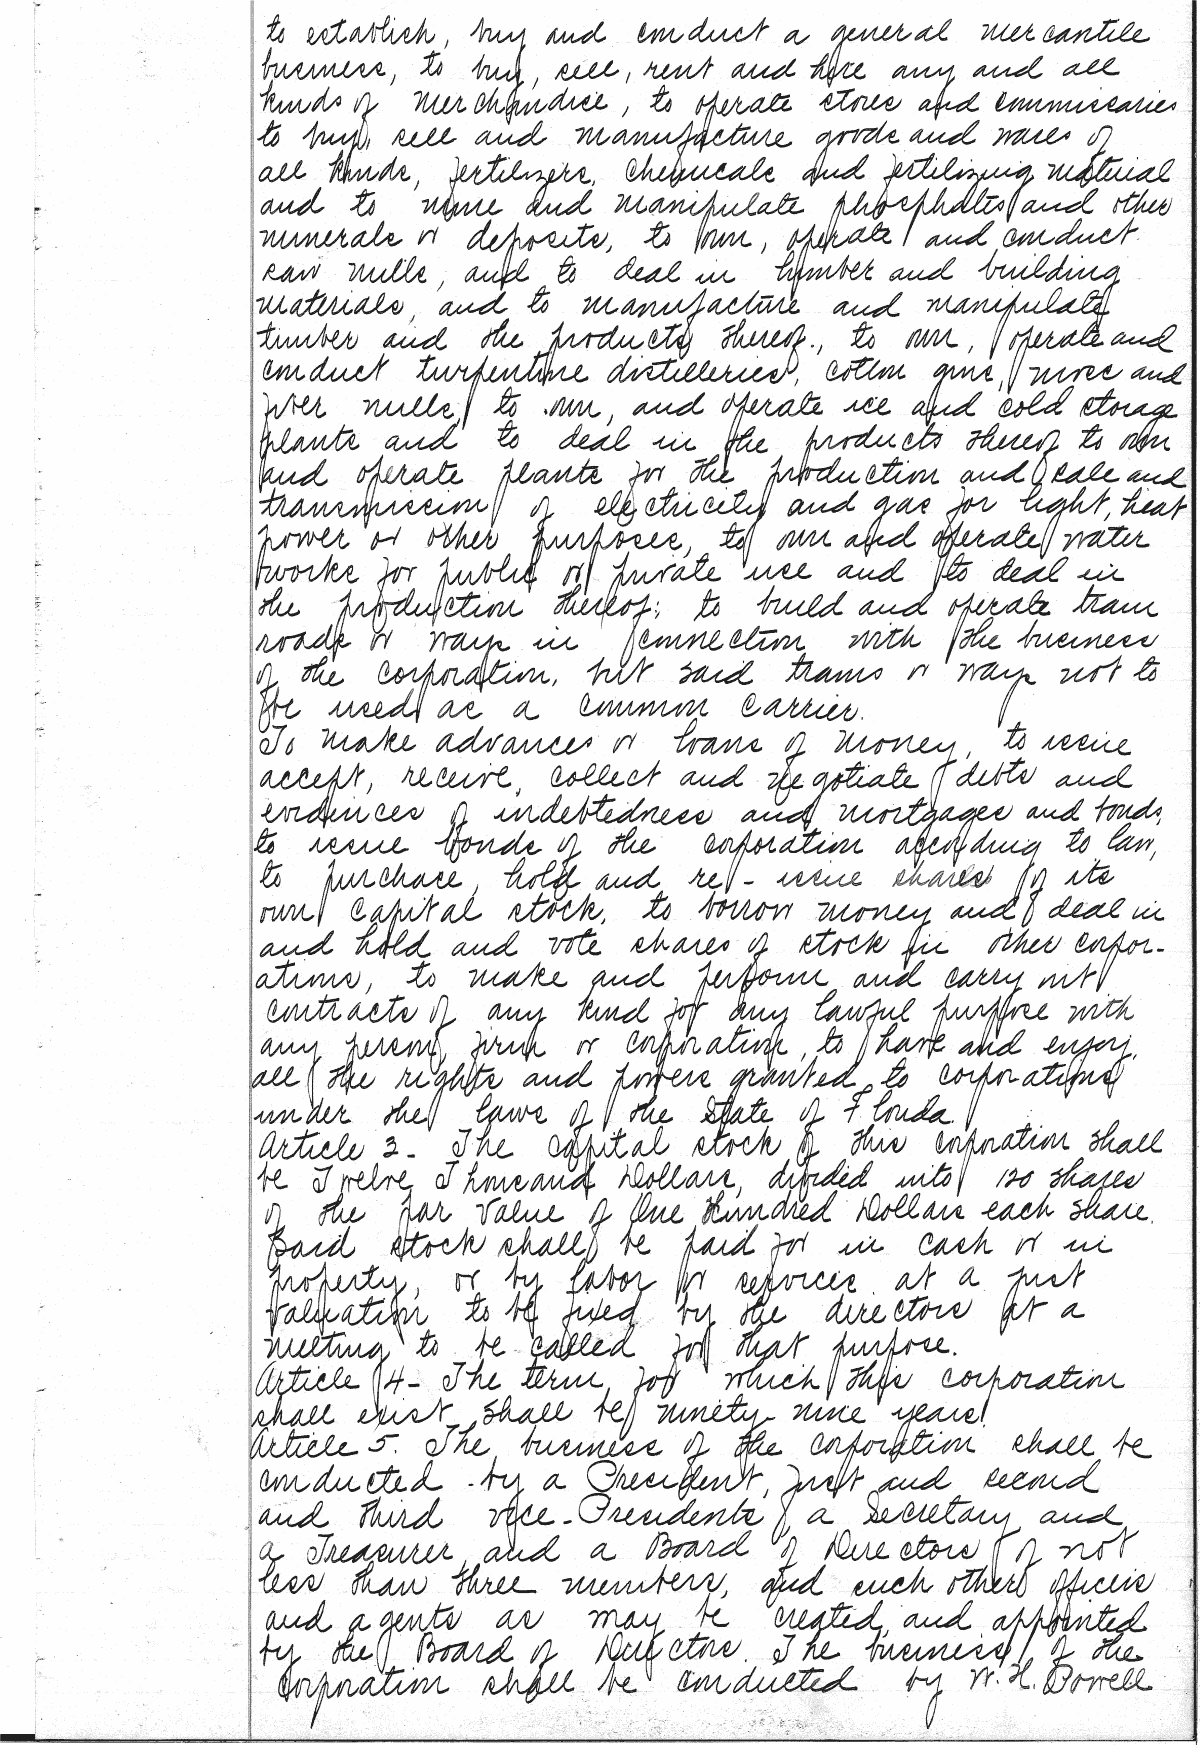 to establish, buy and conduct a general mercantile
business, to buy, sell, rent and hire any and all
kinds of merchandise, to operate stores and commissaries
to buy, sell and manufacture goods and wares of
all kinds, fertilizers, chemicals and fertilizing material
and to mine and manipulate phosphates and other
minerals or deposits, to own, operate and conduct
saw mills, and to deal in lumber and building
materials, and to manufacture and manipulate
timber and the products thereof., to own, operate and
conduct turpentine distilleries, cotton gins, moss and
fiber mills, to own, and operate ice and cold storage
plants and to deal in the products thereof to own
and operate plants for the production and sale and
transmission of electricity and gas for light, heat
power or other purposes, to own and operate water
works for public or private use and to deal in
the production thereof; to build and operate tram
roads or ways in connection with the business
of the corporation, but said trams or ways not to
be used as a common carrier.
To make advances or loans of money, to issue
accept, receive, collect and negotiate debts and
evidences of indebtedness and mortgages and bonds,
to issue bonds of the corporation according to law,
to purchase, hold and re-issue shares of its
own capital stock, to borrow money and deal in
and hold and vote shares of stock in other corpor-
ations, to make and perform and carry out
contracts of any kind for any lawful purpose with
any person, firm or corporation, to have and enjoy,
all the rights and powers granted to corporations
under the laws of the State of Florida
Article 3- The capital stock of this corporation shall
be Twelve Thousand Dollars, divided into 120 shares
of the par value of One Hundred Dollars each share.
Said stock shall be paid for in cash or in
property, or by labor or services at a just
valuation to be fixed by the directors at a
meeting to be called for that purpose.
Article 4- The term for which this corporation
shall exist shall be ninety-nine years.
Article 5. The business of the corporation shall be
conducted by a President, first and second
and third vice-Presidents, a Secretary and
a Treasurer, and a Board of Directors of not
less than three members, and such other officers
and agents as may be created and appointed
by the Board of Directors. The business of the
Corporation shall be conducted by W. H. Powell